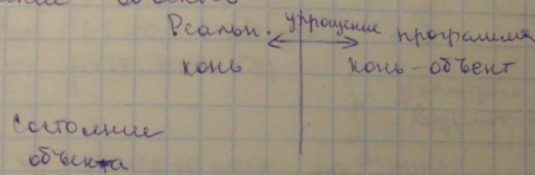 Реальн. упрощение программа
конь конь - объект
Состояние
объекта